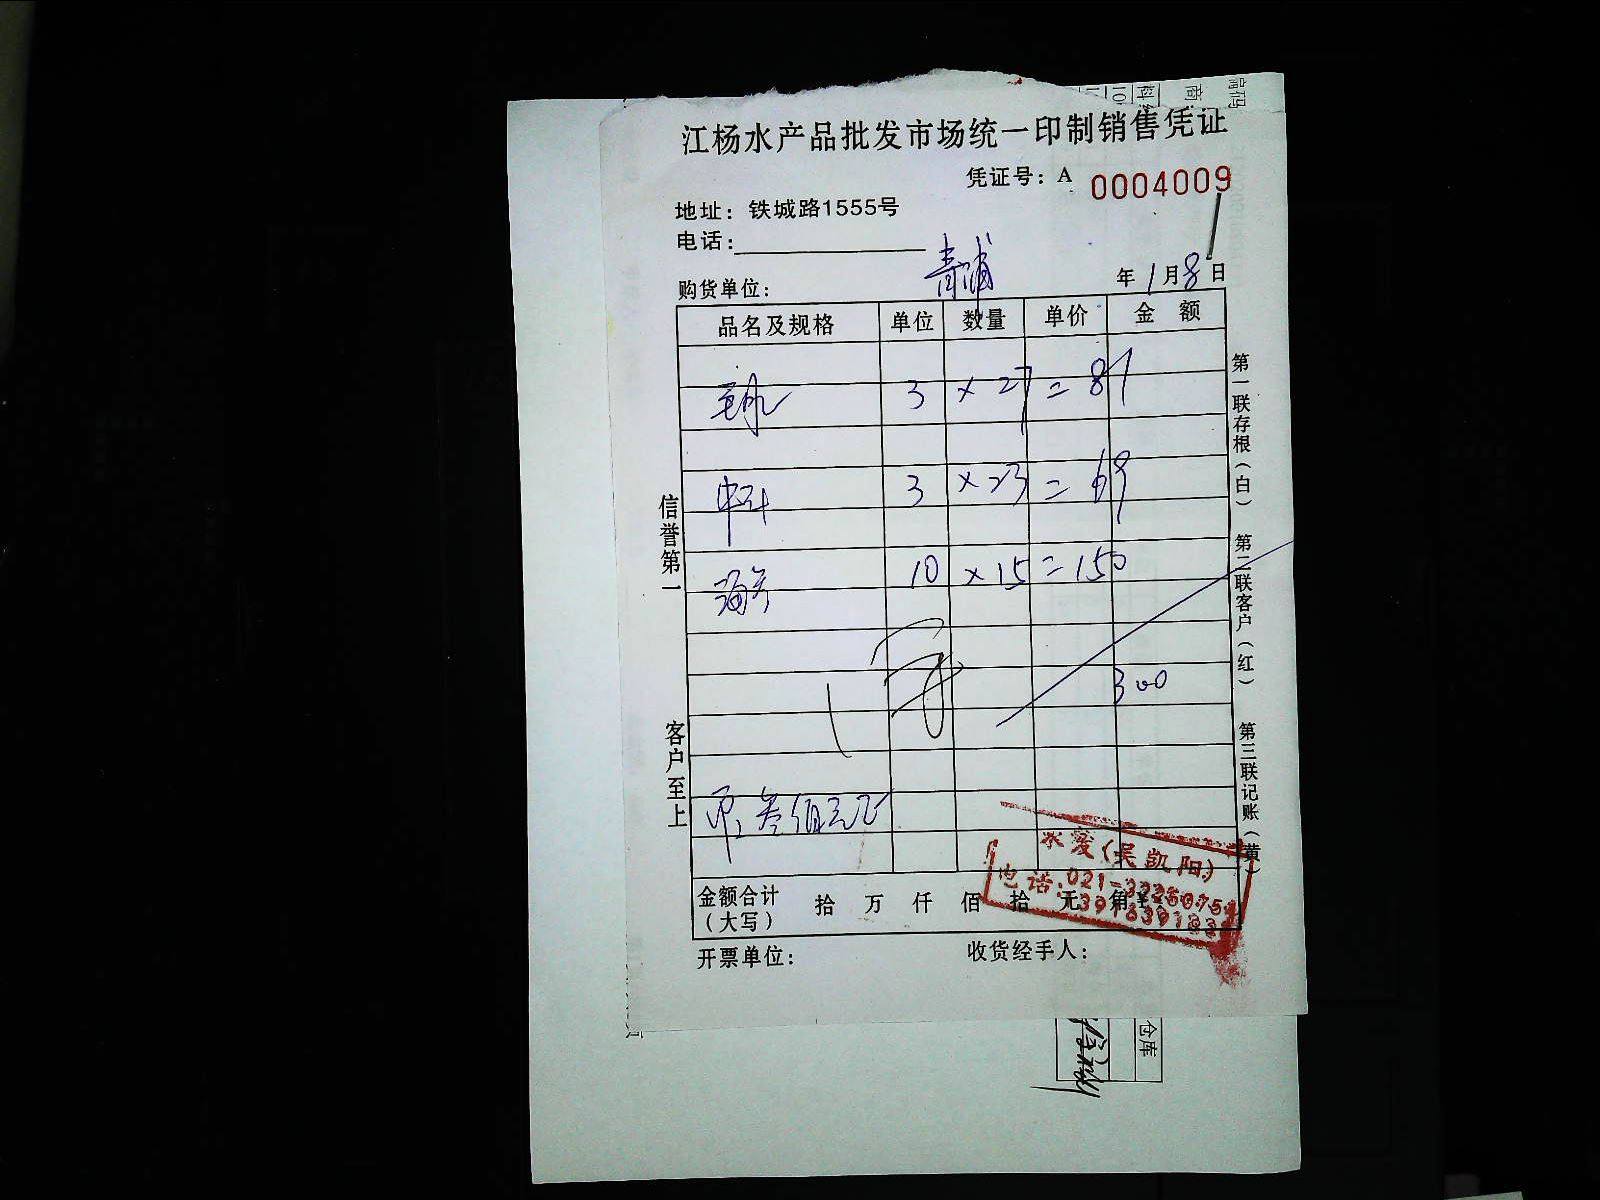 江杨水产品批发市场统一印制销售凭证
凭证号：A 0004009
地址：铁城路1555号
电话：
购货单位： 青浦 年1月8日
品名及规格 单位 数量 单价 金额
3 × 27 = 81
3 × 23 = 69
10 × 15 = 150
300
叁佰元正
金额合计（大写） 拾 万 仟 佰 拾 元 角
开票单位： 收货经手人：
信誉第一
客户至上
第一联存根（白）
第二联客户（红）
第三联记账（黄）
(吴凯阳)
电话:021-
仓库